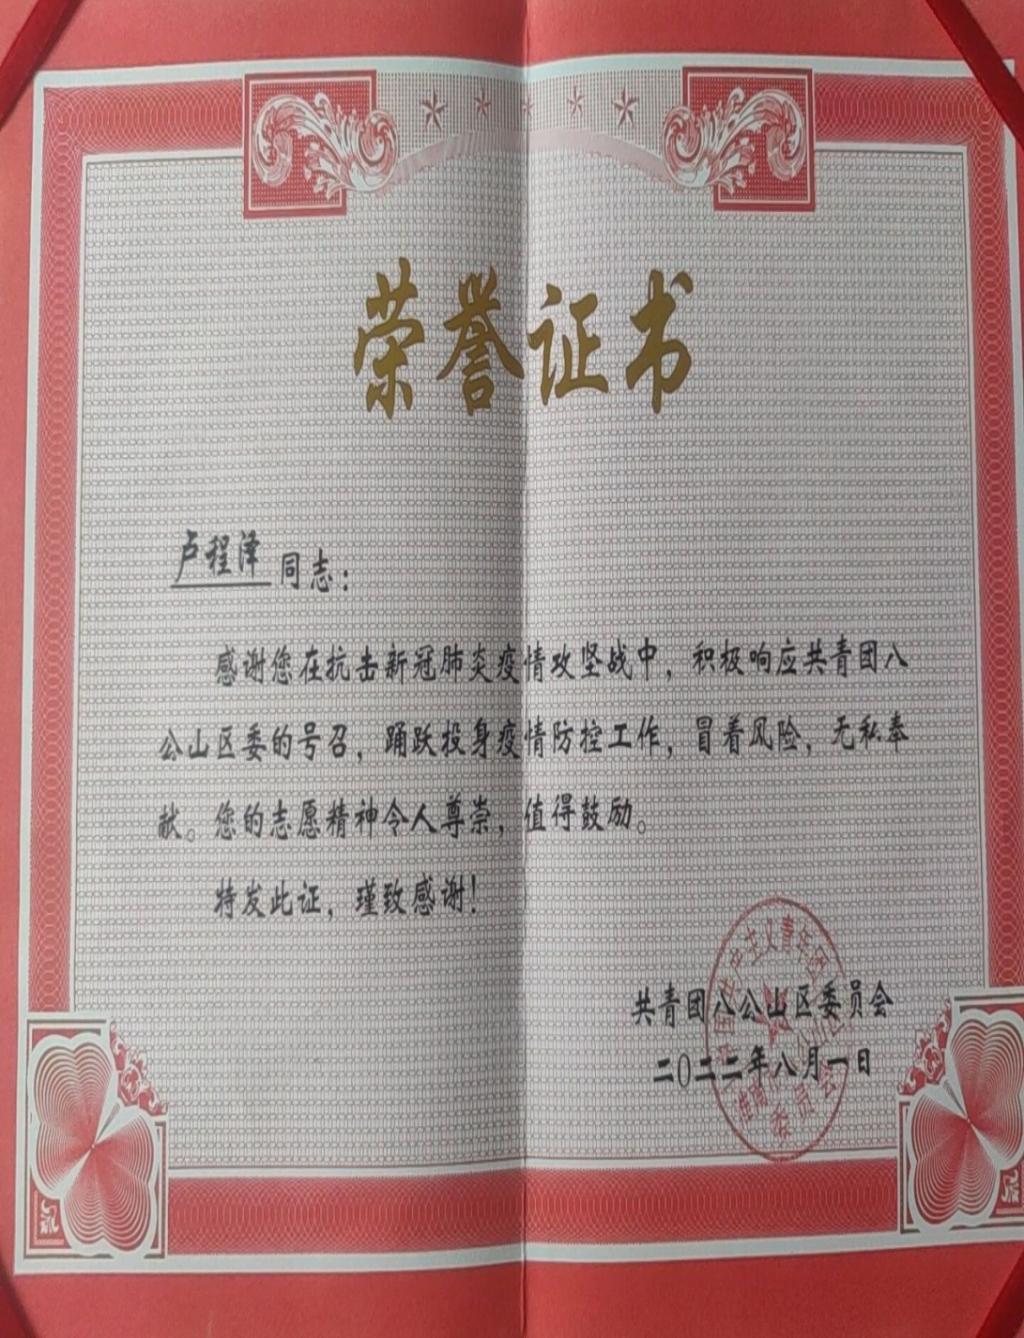 荣誉证书
卢程泽同志：
感谢您在抗击新冠肺炎疫情攻坚战中，积极响应共青团八
公山区委的号召，踊跃投身疫情防控工作，冒着风险，无私奉
献。您的志愿精神令人尊崇，值得鼓励。
特发此证，瑾致感谢！
共青团八公山区委员会
二〇二二年八月一日
产主义青年团
委员会